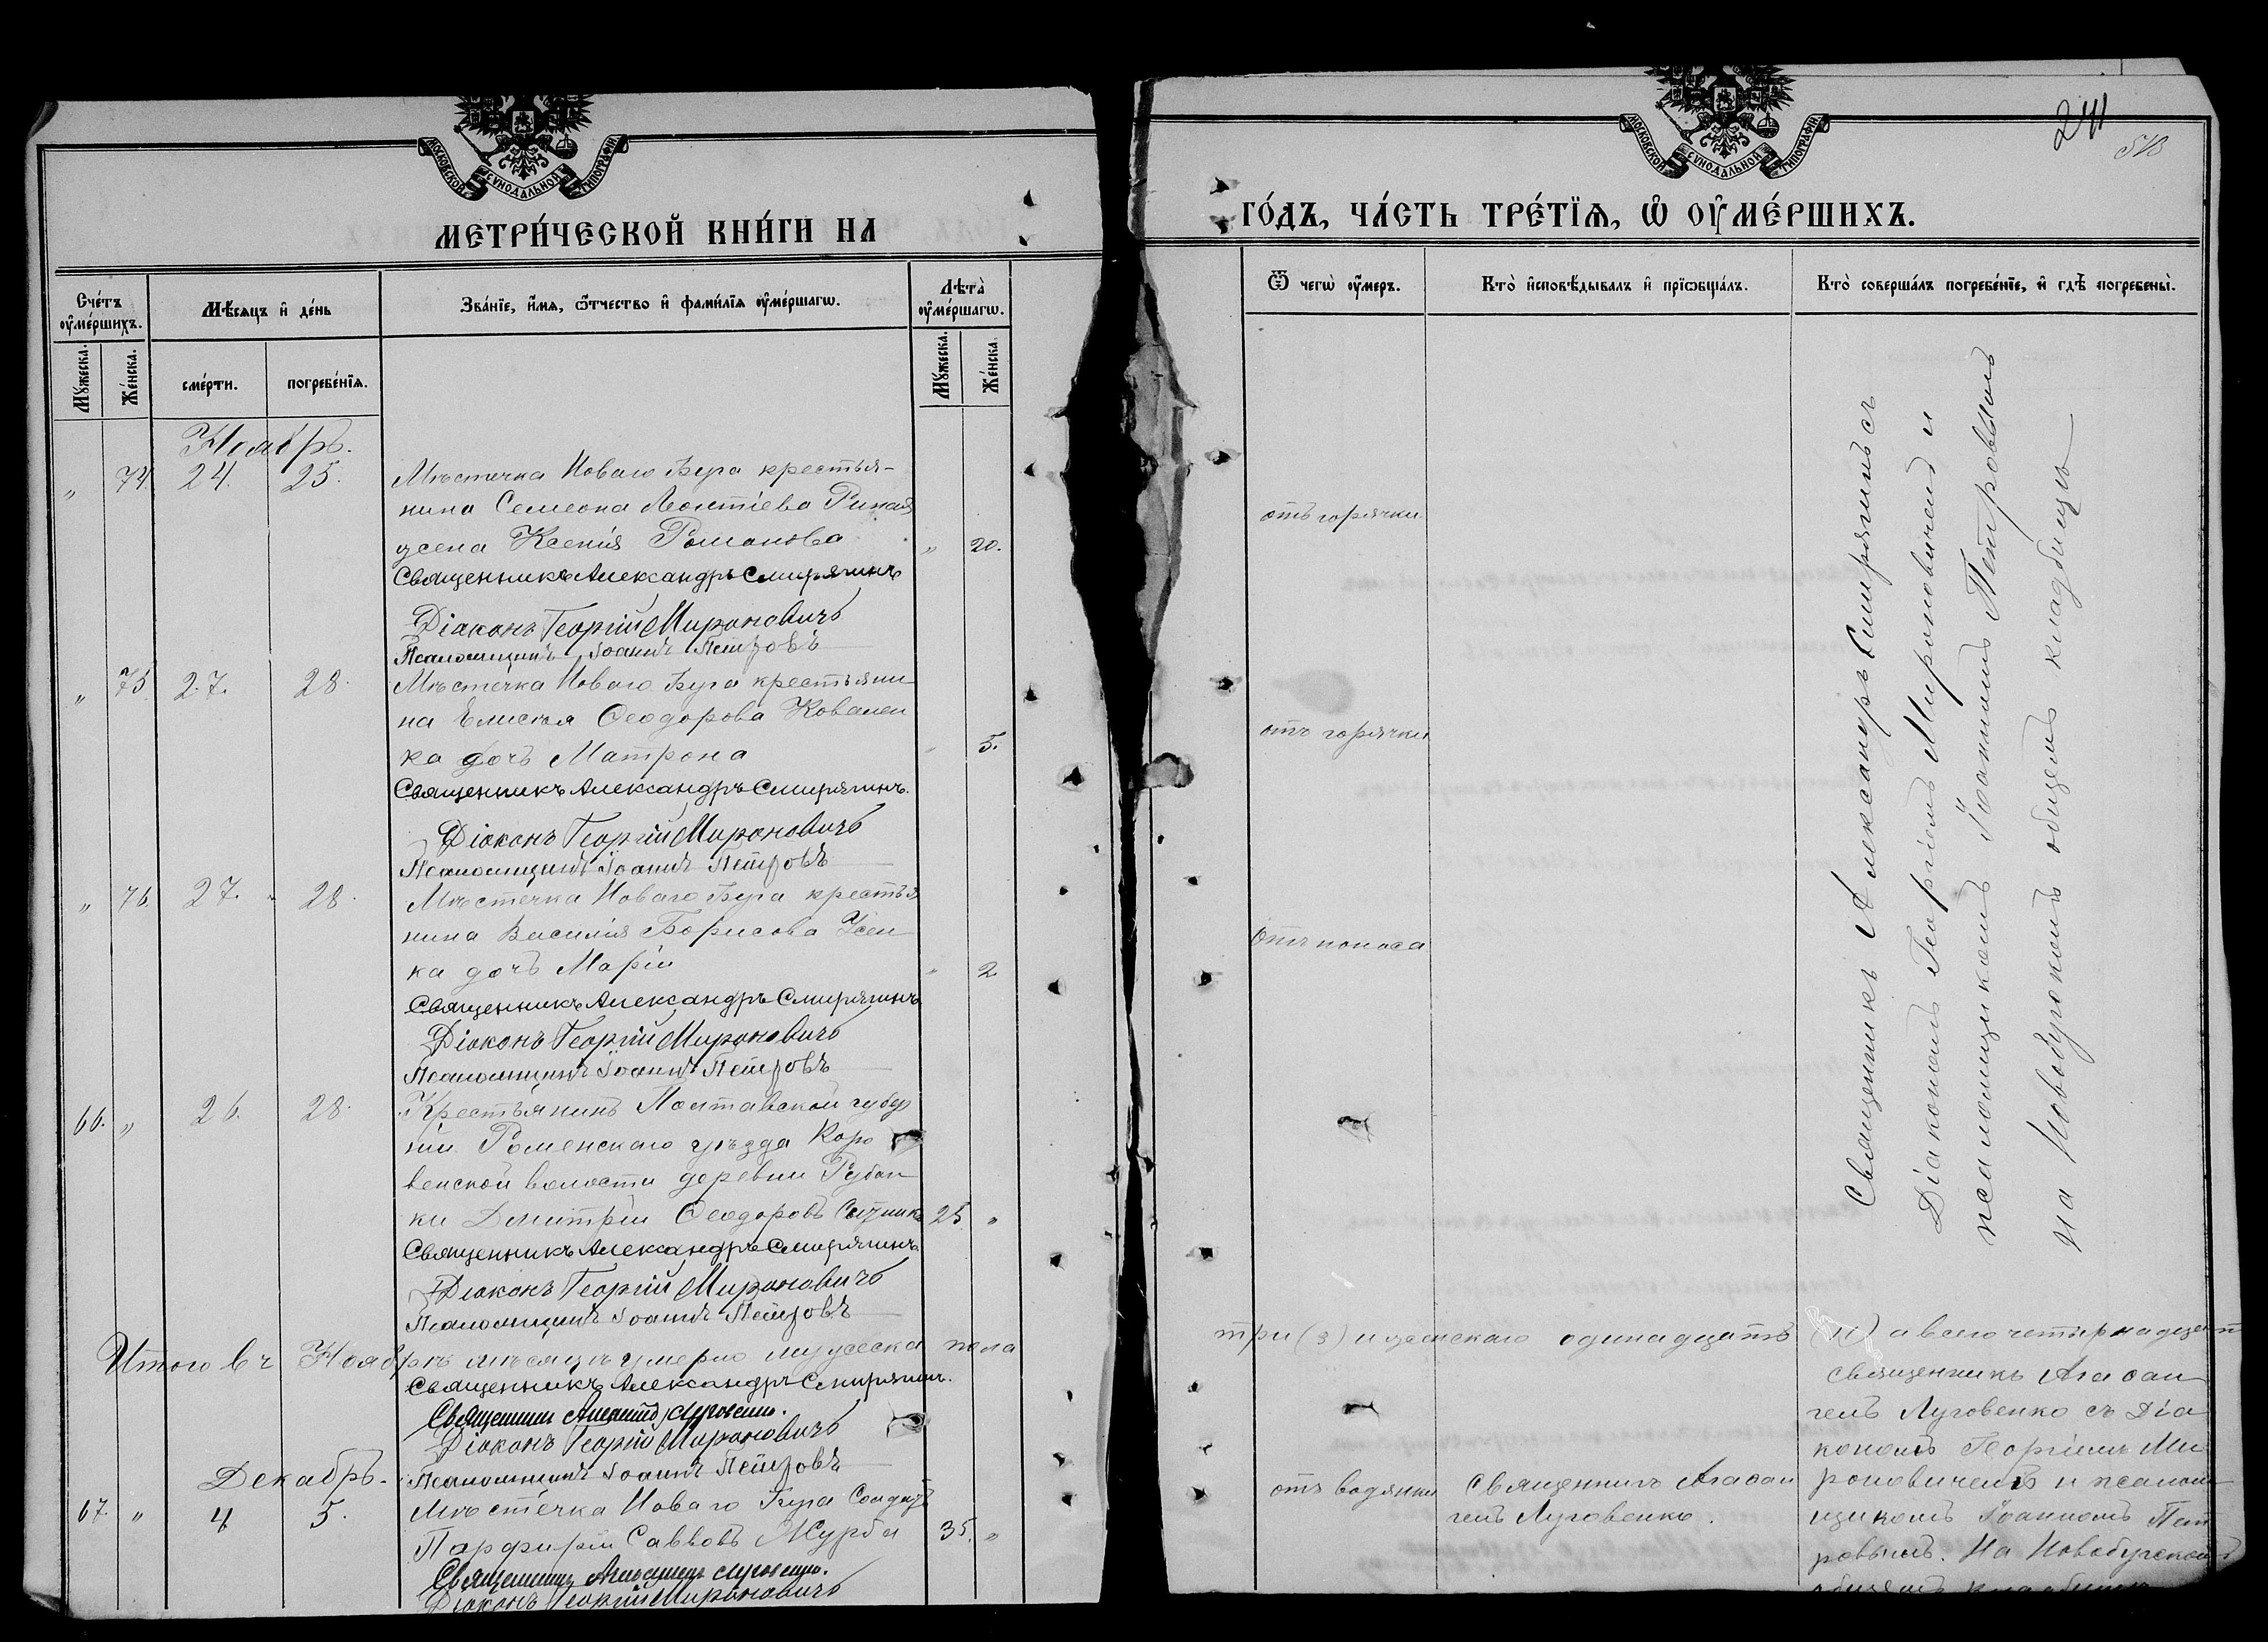 МОСКОВСКОЙ СѴНОДАЛЬНОЙ ТИПОГРАФІИ
МЕТРИ́ЧЕСКОЙ КНИ́ГИ НА
Сче́тъ ᲂу҆ме́ршихъ.
Мѣ́сяцъ и҆ де́нь
Зва́нїе, и҆́мя, ѻ҆́тчество и҆ фами́лїя ᲂу҆ме́ршагѡ.
Лѣта̀ ᲂу҆ме́ршагѡ.
Мꙋ́жеска.
Же́нска.
сме́рти.
погребе́нїя.
Мꙋ́жеска.
Же́нска.
Ноябрь.
„ 74. 24. 25. Мѣстечка Новаго Буга крестья-
нина Семеона Леонтіева
жена Ксенія Романова „ 20.
Священникъ Александръ Смирягинъ
Діаконъ Георгій Мироновичъ
Псаломщикъ Іоаннъ Петровъ
„ 75. 27. 28. Мѣстечка Новаго Буга крестьяни
на Елисея Ѳеодорова Ковален
ка дочь Матрона „ 5.
Священникъ Александръ Смирягинъ.
Діаконъ Георгій Мироновичъ
Псаломщикъ Іоаннъ Петровъ
„ 76. 27. 28. Мѣстечка Новаго Буга крестья
нина Василія Борисова Усен
ка дочь Марія „ 2
Священникъ Александръ Смирягинъ
Діаконъ Георгій Мироновичъ
Псаломщикъ Іоаннъ Петровъ
66. „ 26. 28. Крестьянинъ Полтавской губер
ніи Роменскаго уѣзда Коро
венской волости деревни Рубан
ки Димитрій Ѳеодоровъ 25. „
Священникъ Александръ Смирягинъ
Діаконъ Георгій Мироновичъ
Псаломщикъ Іоаннъ Петровъ
Итого въ Ноябрѣ мѣсяцѣ умерло мужеска пола
Священникъ Александръ Смирягинъ.
Священникъ Луговенко.
Діаконъ Георгій Мироновичъ
Псаломщикъ Іоаннъ Петровъ
Декабрь.
67. „ 4 5. Мѣстечка Новаго Буга Солдатъ
Парфирій Саввовъ Журба 35. „
Священникъ Луговенко.
Діаконъ Георгій Мироновичъ
МОСКОВСКОЙ СѴНОДАЛЬНОЙ ТИПОГРАФІИ
241
ГО́ДЪ, ЧА́СТЬ ТРЕ́ТЇЯ, Ѡ҆ ОУ҆МЕ́РШИХЪ.
Ѿ чегѡ̀ ᲂу҆́меръ.
Кто̀ и҆сповѣ́дывалъ и҆ прїѡбща́лъ.
Кто̀ соверша́лъ погребе́нїе, и҆ гдѣ̀ погребены̀.
отъ горячки.
отъ горячки
Отъ поноса
Священникъ Александръ Смирягинъ съ
Діакономъ Георгіемъ Мироновичемъ и
псаломщикомъ Іоанномъ Петровымъ
На Новобугскомъ общемъ кладбищѣ
три (3) и женскаго одинадцать (11) а всего четырнадцат
Священникъ Агаѳан
гелъ Луговенко съ Діа
кономъ Георгіемъ Ми
отъ водянки Священникъ Агаѳан роновичемъ и псалом
гелъ Луговенко. щикомъ Іоанномъ Пет
ровымъ. На Новобугскомъ
общемъ кладбищѣ